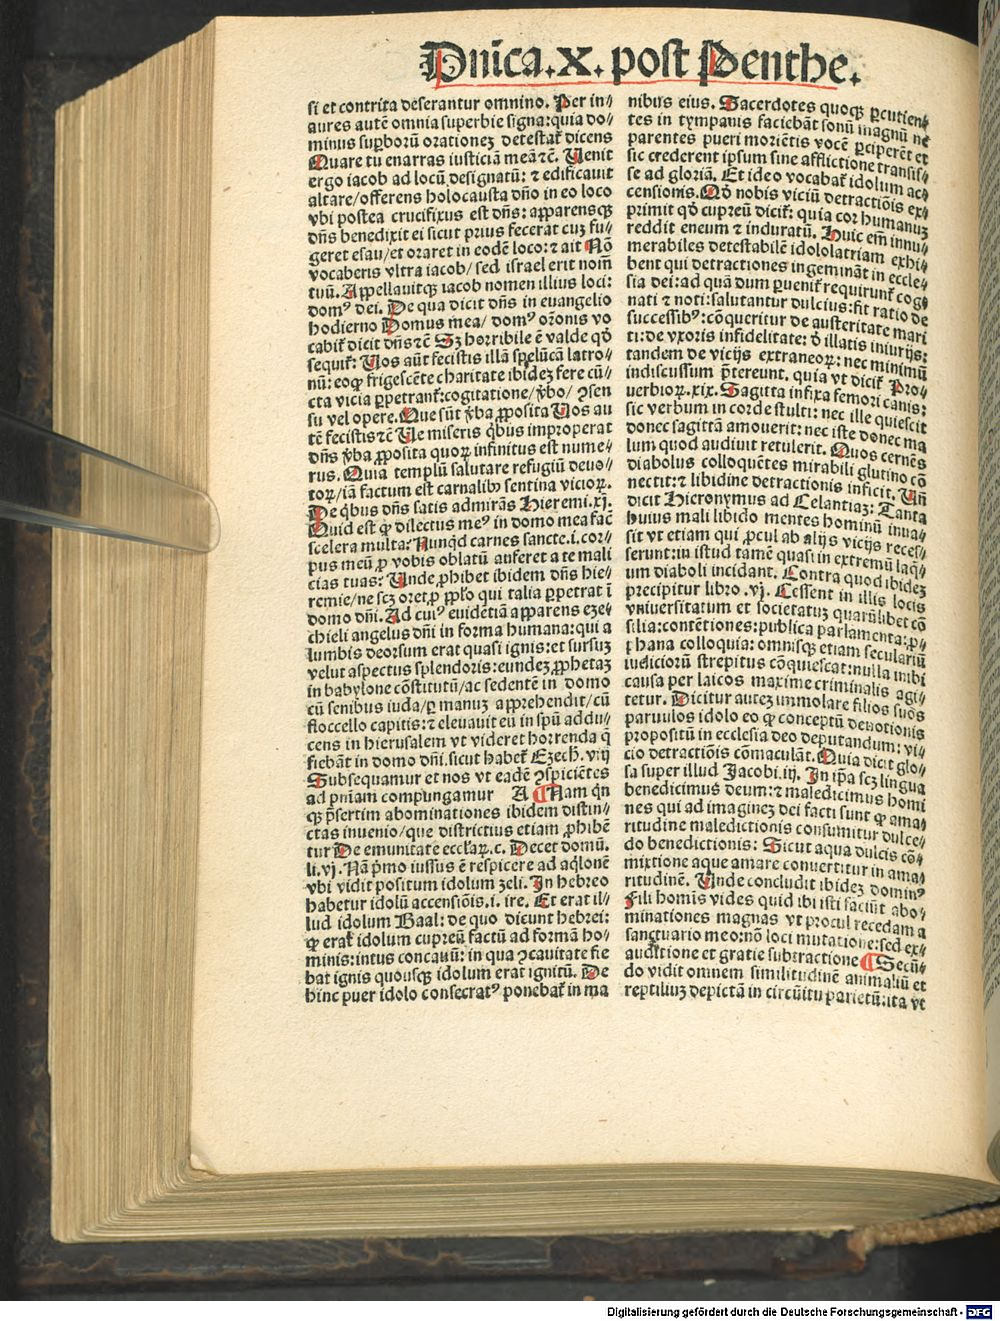 Dnīca.X.post Penthe.
si et contrita deserantur omnino. Per in⸗
aures autē omnia superbie signa:quia do⸗
minus suꝑborū orationez detestat᷑ dicens
Quare tu enarras iusticiā meā ⁊c̄. Uenit
ergo iacob ad locū designatū: ⁊ edificauit
altare/offerens holocausta dn̄o in eo loco
vbi postea crucifixus est dn̄s: apparensqꝫ
dn̄s benedixit ei sicut prius fecerat cuꝫ fu⸗
geret esau/et oraret in eodē loco: ⁊ ait Nō
vocaberis vltra iacob/ sed israel erit nom̄
tuū. Appellauitqꝫ iacob nomen illius loci:
domꝰ dei. De qua dicit dn̄s in euangelio
hodierno Domus mea/ domꝰ or̄onis vo
cabit᷑ dicit dn̄s ⁊c̄ Sꝫ horribile ē valde qḋ
sequit᷑: Uos aūt fecistis illā spelūcā latro⸗
nū: eoqꝫ frigescēte charitate ibidez fere cū⸗
cta vicia ꝑpetrant᷑:cogitatione/ v̄bo/ ꝯsen
su vel opere. Que sūt v̄ba ꝓposita Uos au
tē fecistis ⁊c̄ Ue miseris q̇bus improperat
dn̄s v̄ba ꝓposita quoꝝ infinitus est nume⸗
rus. Quia templū salutare refugiū deuo⸗
toꝝ/iā factum est carnalibꝰ sentina vicioꝝ.
De q̇bus dn̄s satis admirās Hieremi.xj.
Quid est ꝙ dilectus meꝰ in domo mea fac̄
scelera multa? Nunq̇d carnes sancte.i.cor⸗
pus meū ꝓ vobis oblatū auferet a te mali
cias tuas? Unde ꝓhibet ibidem dn̄s hie⸗
remie/ne scꝫ oret ꝓ pp̄lo qui talia ꝑpetrat ī
domo dn̄i. Ad cuiꝰ euidētiā apparens eze⸗
chieli angelus dn̄i in forma humana:qui a
lumbis deorsum erat quasi ignis:et sursuꝫ
velut aspectus splendoris:eundeꝫ ꝓphetaꝫ
in babylone cōstitutū/ac sedentē in domo
cū senibus iuda/ꝑ manuꝫ apprehendit/cū
floccello capitis:⁊ eleuauit eū in spū addu⸗
cens in hierusalem vt videret horrenda q̄
fiebāt in domo dn̄i.sicut habet᷑ Ezech.viij
Subsequamur et nos vt eadē ꝯspiciētes
ad pn̄iam compungamur A ¶Nam q̄n
qꝫ p̄sertim abominationes ibidem distin⸗
ctas inuenio/que districtius etiam ꝓhibē
tur De emunitate eccl̄aꝝ.c. Decet domū.
li.vj. Nā p̄mo iussus ē respicere ad aq̇lonē
vbi vidit positum idolum zeli. In hebreo
habetur idolū accensiōis.i. ire. Et erat il⸗
lud idolum Baal: de quo dicunt hebrei:
ꝙ erat idolum cupreū factū ad formā ho⸗
minis:intus concauū: in qua ꝯcauitate fie
bat ignis quousqꝫ idolum erat ignitū. De
hinc puer idolo consecratꝰ ponebat᷑ in ma
nibus eius. Sacerdotes quoqꝫ ꝑcutien⸗
tes in tympanis faciebāt sonū magnū ne
parentes pueri moriētis vocē ꝑciperēt et
sic crederent ipsum sine afflictione transis⸗
se ad gloriā. Et ideo vocabat᷑ idolum ac⸗
censionis. Qḋ nobis viciū detractiōis ex⸗
primit qḋ cupreū dicit᷑: quia cor humanuꝫ
reddit eneum ⁊ induratū. Huic em̄ innu⸗
merabiles detestabilē idololatriam exhi⸗
bent qui detractiones ingemināt in eccle⸗
sia dei:ad quā dum ꝑuenit᷑ requirunt᷑ cog⸗
nati ⁊ noti:salutantur dulcius:fit ratio de
successibꝰ:cōqueritur de austeritate mari
ti:de vxoris infidelitate: ḋ illatis iniurijs:
tandem de vicijs extraneoꝝ: nec minimū
indiscussum p̄tereunt. quia vt dicit᷑ Pro⸗
uerbioꝝ.xix. Sagitta infixa femori canis:
sic verbum in corde stulti: nec ille quiescit
donec sagittā amouerit: nec iste donec ma
lum quod audiuit retulerit. Quos cernēs
diabolus colloquētes mirabili glutino cō
nectit:⁊ libidine detractionis inficit. Un̄
dicit Hieronymus ad Celantiaꝫ: Tanta
huius mali libido mentes hominū inua⸗
sit vt etiam qui ꝓcul ab alijs vicijs reces⸗
serunt:in istud tamē quasi in extremū laq̄⸗
um diaboli incidant. Contra quod ibideꝫ
precipitur libro.vj. Cessent in illis locis
vniuersitatum et societatuꝫ quarūlibet cō
silia:contētiones:publica parlamenta:ꝓ⸗
phana colloquia: omnisqꝫ etiam seculariū
iudiciorū strepitus cōquiescat:nulla inibi
causa per laicos maxime criminalis agi⸗
tetur. Dicitur autez immolare filios suos
paruulos idolo eo ꝙ conceptū deuotionis
propositū in ecclesia deo deputandum: vi⸗
cio detractiōis cōmaculāt. Quia dicit glo⸗
sa super illud Jacobi.iij. In ip̄a scꝫ lingua
benedicimus deum:⁊ maledicimus homi
nes qui ad imaginez dei facti sunt ꝙ ama⸗
ritudine maledictionis consumitur dulce⸗
do benedictionis: Sicut aqua dulcis cō⸗
mixtione aque amare conuertitur in ama⸗
ritudinē. Unde concludit ibidez dominꝰ
Fili homis̄ vides quid ibi isti faciūt abo⸗
minationes magnas vt procul recedam a
sanctuario meo:nō loci mutatione:sed ex⸗
auditione et gratie subtractione ¶Secū⸗
do vidit omnem similitudinē animaliū et
reptiliuꝫ depictā in circūitu parietū:ita vt
Digitalisierung gefördert durch die Deutsche Forschungsgemeinschaft - DFG